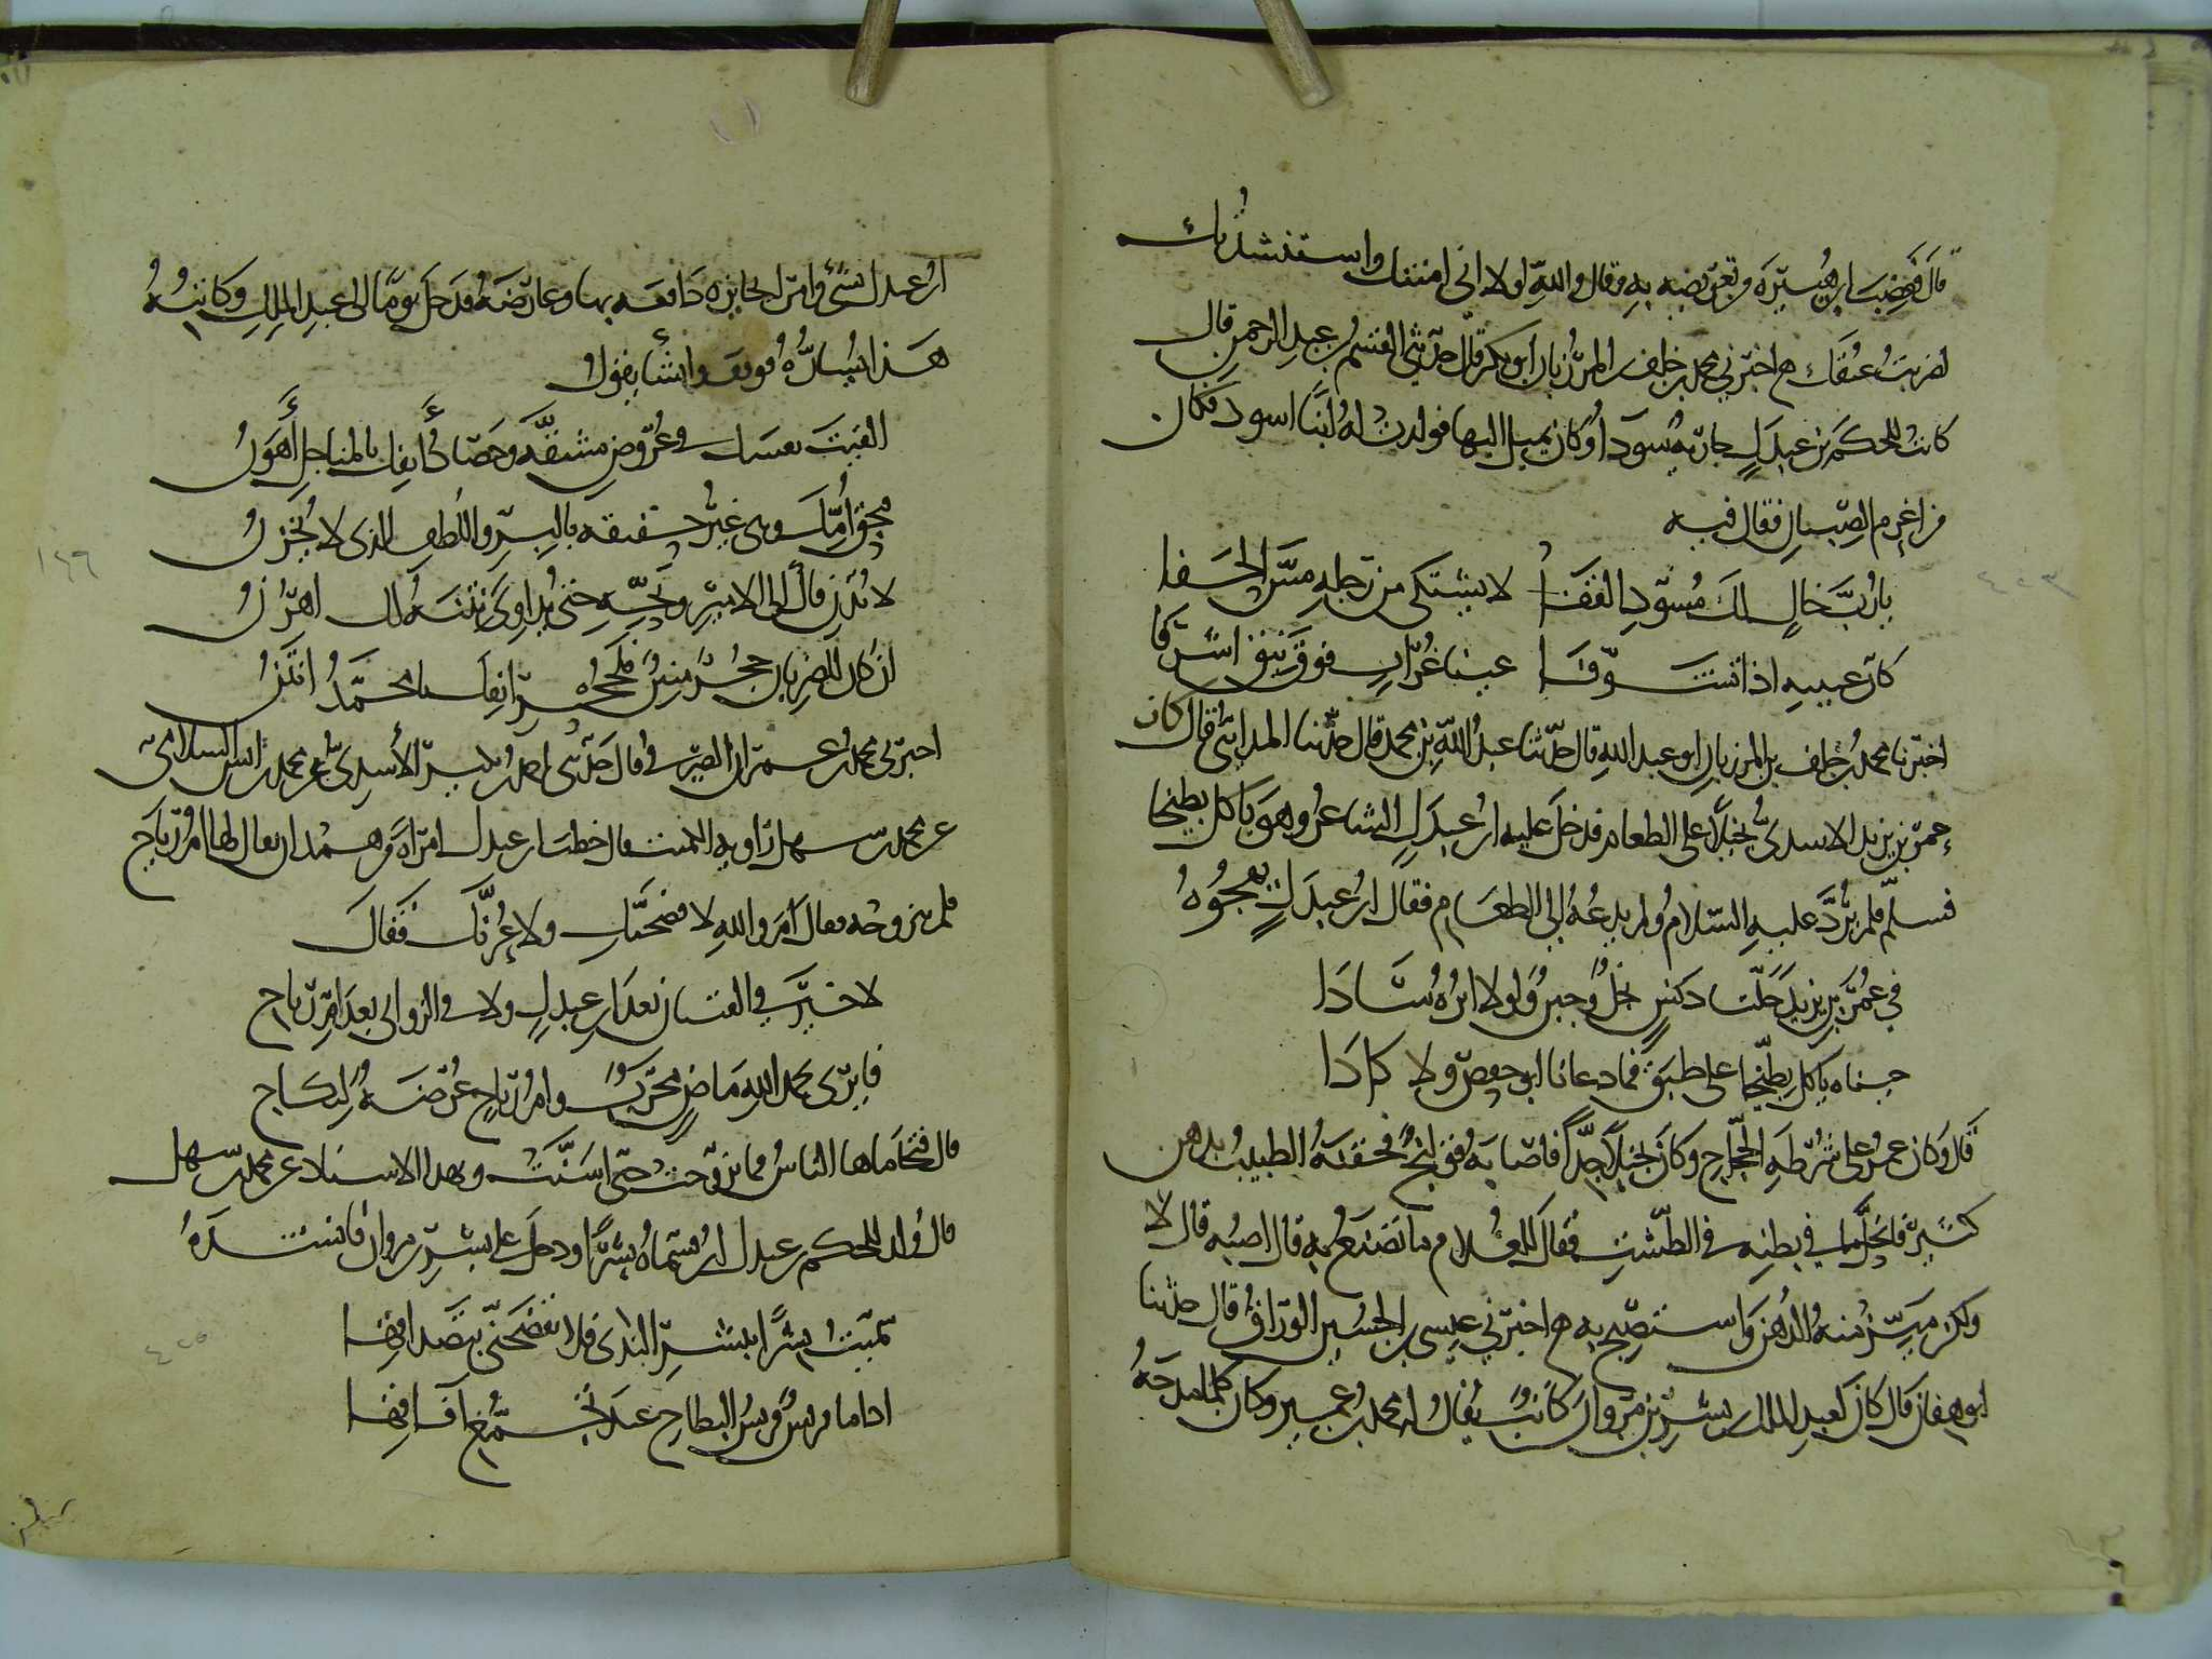 قال فغضب ابن هبيرة من تعريضه به وقال والله لولا اني امنتك واستنشدتك
لضربت عنقك اخبرني محمد بن خلف بن المرزبان ابو بكر قال حدثني القسم بن عبد الرحمن قال
كانت للحكم بن عبدل جارية سوداء وكان يميل اليها فولدت له ابنا اسود فكان
من اعرم الصبيان فقال فيه
يا رب خال لك مسود القفا لا يشتكي من رجله مس الحفا
كان عينيه اذا تشوفا عينا غراب فوق نيق اشرفا
اخبرنا محمد بن خلف بن المرزبان ابو عبد الله قال حدثنا عبد الله بن محمد قال حدثنا المدائني قال كان
عمر بن يزيد الاسدي بخيلا على الطعام فدخل عليه ابن عبدل الشاعر وهو ياكل بطيخا
فسلم فلم يرد عليه السلام ولم يدعه الى الطعام فقال ابن عبدل يهجوه
في عمر بن يزيد خلتا دنس بخل وجبن ولولا ايره سادا
جيناه ياكل بطيخا على طبق فما دعانا ابو حفص ولا كادا
قال وكان عمر على شرطة الحجاج وكان بخيلا جدا فاصابه قولنج فحقنه الطبيب بدهن
كثير فانحل ما في بطنه في الطشت فقال للغلام ما تصنع به قال اصبه قال لا
ولكن ميز منه الدهن واستصبح به اخبرني عيسى بن الحسين الوراق قال حدثنا
ابو هفان قال كان لعبد الملك بن بشر بن مروان كاتب يقال له محمد بن عمير وكان كلما مدحه
ابن عبدل بشيء وامر له بجايزة دافعه بها وعارضه فدخل يوما الى عبد الملك وكاتبه
هذا يساره فوقف وانشا يقول
القيت نفسك في عروض مشقة وحصاد انفك بالمناجل اهون
بحق امك وهي غير حقيقة بالبر واللطف الذي لا يخزن
لا تدن فاك الى الامير ونحه حتى يداوي نتنه لك اهرن
ان كان للظربان جحر منتن فلجحر انفك يا محمد انتن
اخبرني محمد بن عمران الصيرفي قال حدثني احمد بن الاسدي عن محمد بن انس السلامي
عن محمد بن سهل راوية الكميت قال خطب ابن عبدل امراة من همدان يقال لها ام رياح
فلم تتزوجه فقال اما والله لا فضحنك ولا عرنك فقال
لا خير في الفتيان بعد ابن عبدل ولا في الزواني بعد ام رياح
فايري بحمد الله ماض مجرب وام رياح عرضة لنكاح
قال فتحاماها الناس فما تزوجت حتى اسنت وبهذا الاسناد عن محمد بن سهل
قال ولد للحكم بن عبدل ابن فسماه بشرا ودخل على بشر بن مروان فانشده
سميت بشرا ببشر الندى فلا تفضحني بتصداقها
اذا ما قريش قريش البطاح عند تجمع افاقها